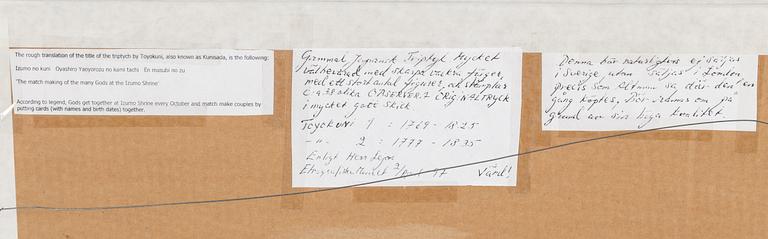 The rough translation of the title of the triptych by Toyokuni, also known as Kunisada, is the following:
Izumo no kuni Oyashiro Yaoyorozu no kami tachi En musubi no zu
'The match making of the many Gods at the Izumo Shrine'
According to legend, Gods get together at Izumo Shrine every October and match make couples by
putting cards (with names and birth dates) together.
Gammal Japansk Triptyk Mycket
välbevarad med skarpa vackra färger,
med ett stort antal figurer, och
olika OBSERVERA ORIGINALTRYCK
i mycket gott skick
Toyokuni 1 : 1769 - 1825
-"- 2 : 1777 - 1835
Enligt Herr
Etnografiska Museet 97 Värd!
Denna bör naturligtvis ej säljas
i Sverige, utan säljas i London
precis som sa, där den en
gång köptes, Bör ramas om på
grund av sin höga kvalitet.